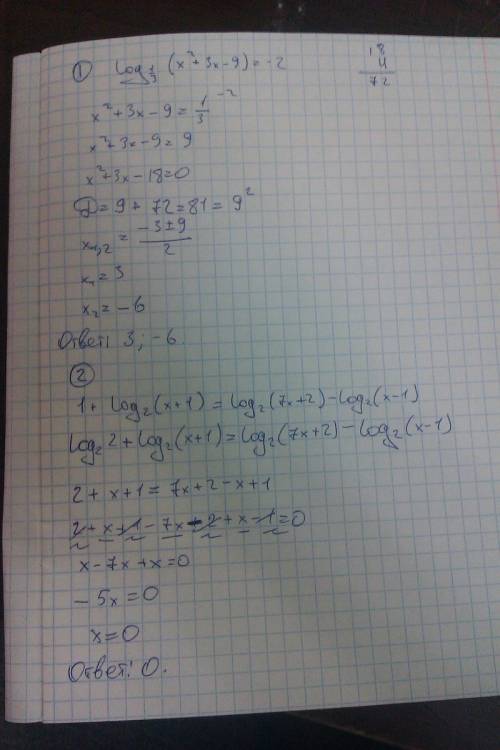 ① log_{1/3} (x²+3x-9)=-2
18
4
72
x²+3x-9=1/3^{-2}
x²+3x-9=9
x²+3x-18=0
D=9+72=81=9²
x_{1,2}=(-3±9)/2
x₁=3
x₂=-6
Ответ: 3;-6.
②
1+log₂(x+1)=log₂(7x+2)-log₂(x-1)
log₂2+log₂(x+1)=log₂(7x+2)-log₂(x-1)
2+x+1=7x+2-x+1
2+x+1-7x-2+x-1=0
x-7x+x=0
-5x=0
x=0
Ответ: 0.